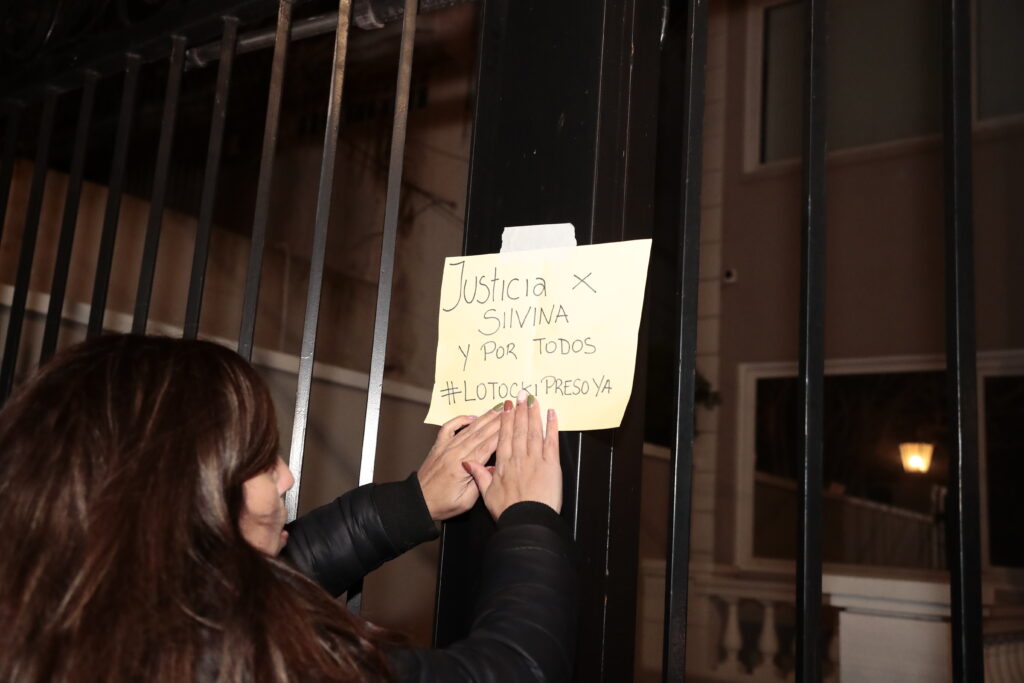 JUSTICIA X
SILVINA
Y POR TODOS
#LOTOCKIPRESOYA